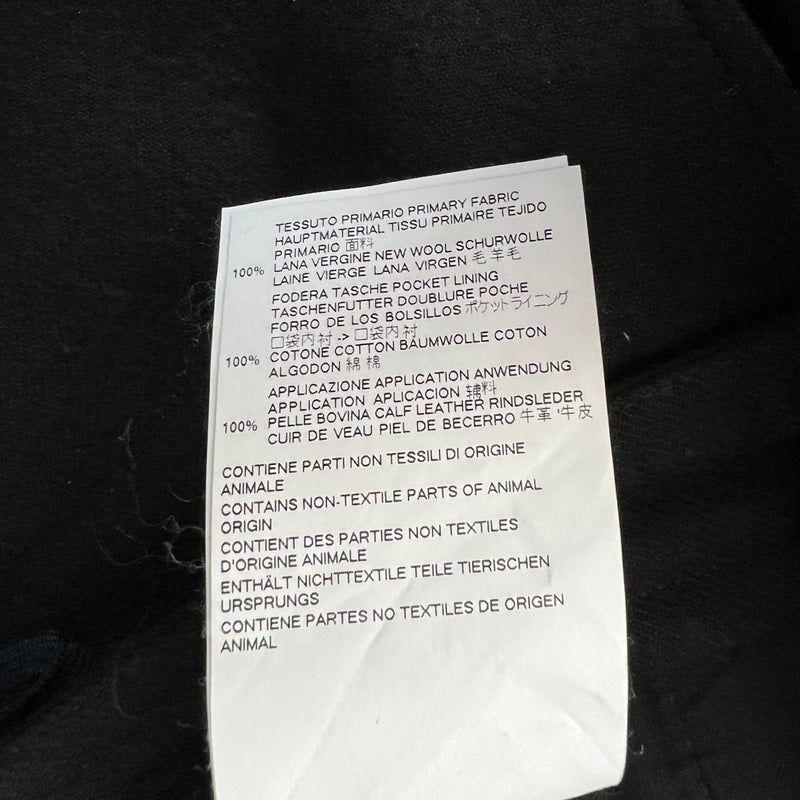 TESSUTO PRIMARIO PRIMARY FABRIC
HAUPTMATERIAL TISSU PRIMAIRE TEJIDO
PRIMARIO 面料
100% LANA VERGINE NEW WOOL SCHURWOLLE
LAINE VIERGE LANA VIRGEN 毛 羊毛
FODERA TASCHE POCKET LINING
TASCHENFUTTER DOUBLURE POCHE
FORRO DE LOS BOLSILLOS ポケットライニング
口袋内衬 -> 口袋内衬
100% COTONE COTTON BAUMWOLLE COTON
ALGODON 綿 棉
APPLICAZIONE APPLICATION ANWENDUNG
APPLICATION APLICACION 辅料
100% PELLE BOVINA CALF LEATHER RINDSLEDER
CUIR DE VEAU PIEL DE BECERRO 牛革 '牛皮
CONTIENE PARTI NON TESSILI DI ORIGINE
ANIMALE
CONTAINS NON-TEXTILE PARTS OF ANIMAL
ORIGIN
CONTIENT DES PARTIES NON TEXTILES
D'ORIGINE ANIMALE
ENTHÄLT NICHTTEXTILE TEILE TIERISCHEN
URSPRUNGS
CONTIENE PARTES NO TEXTILES DE ORIGEN
ANIMAL